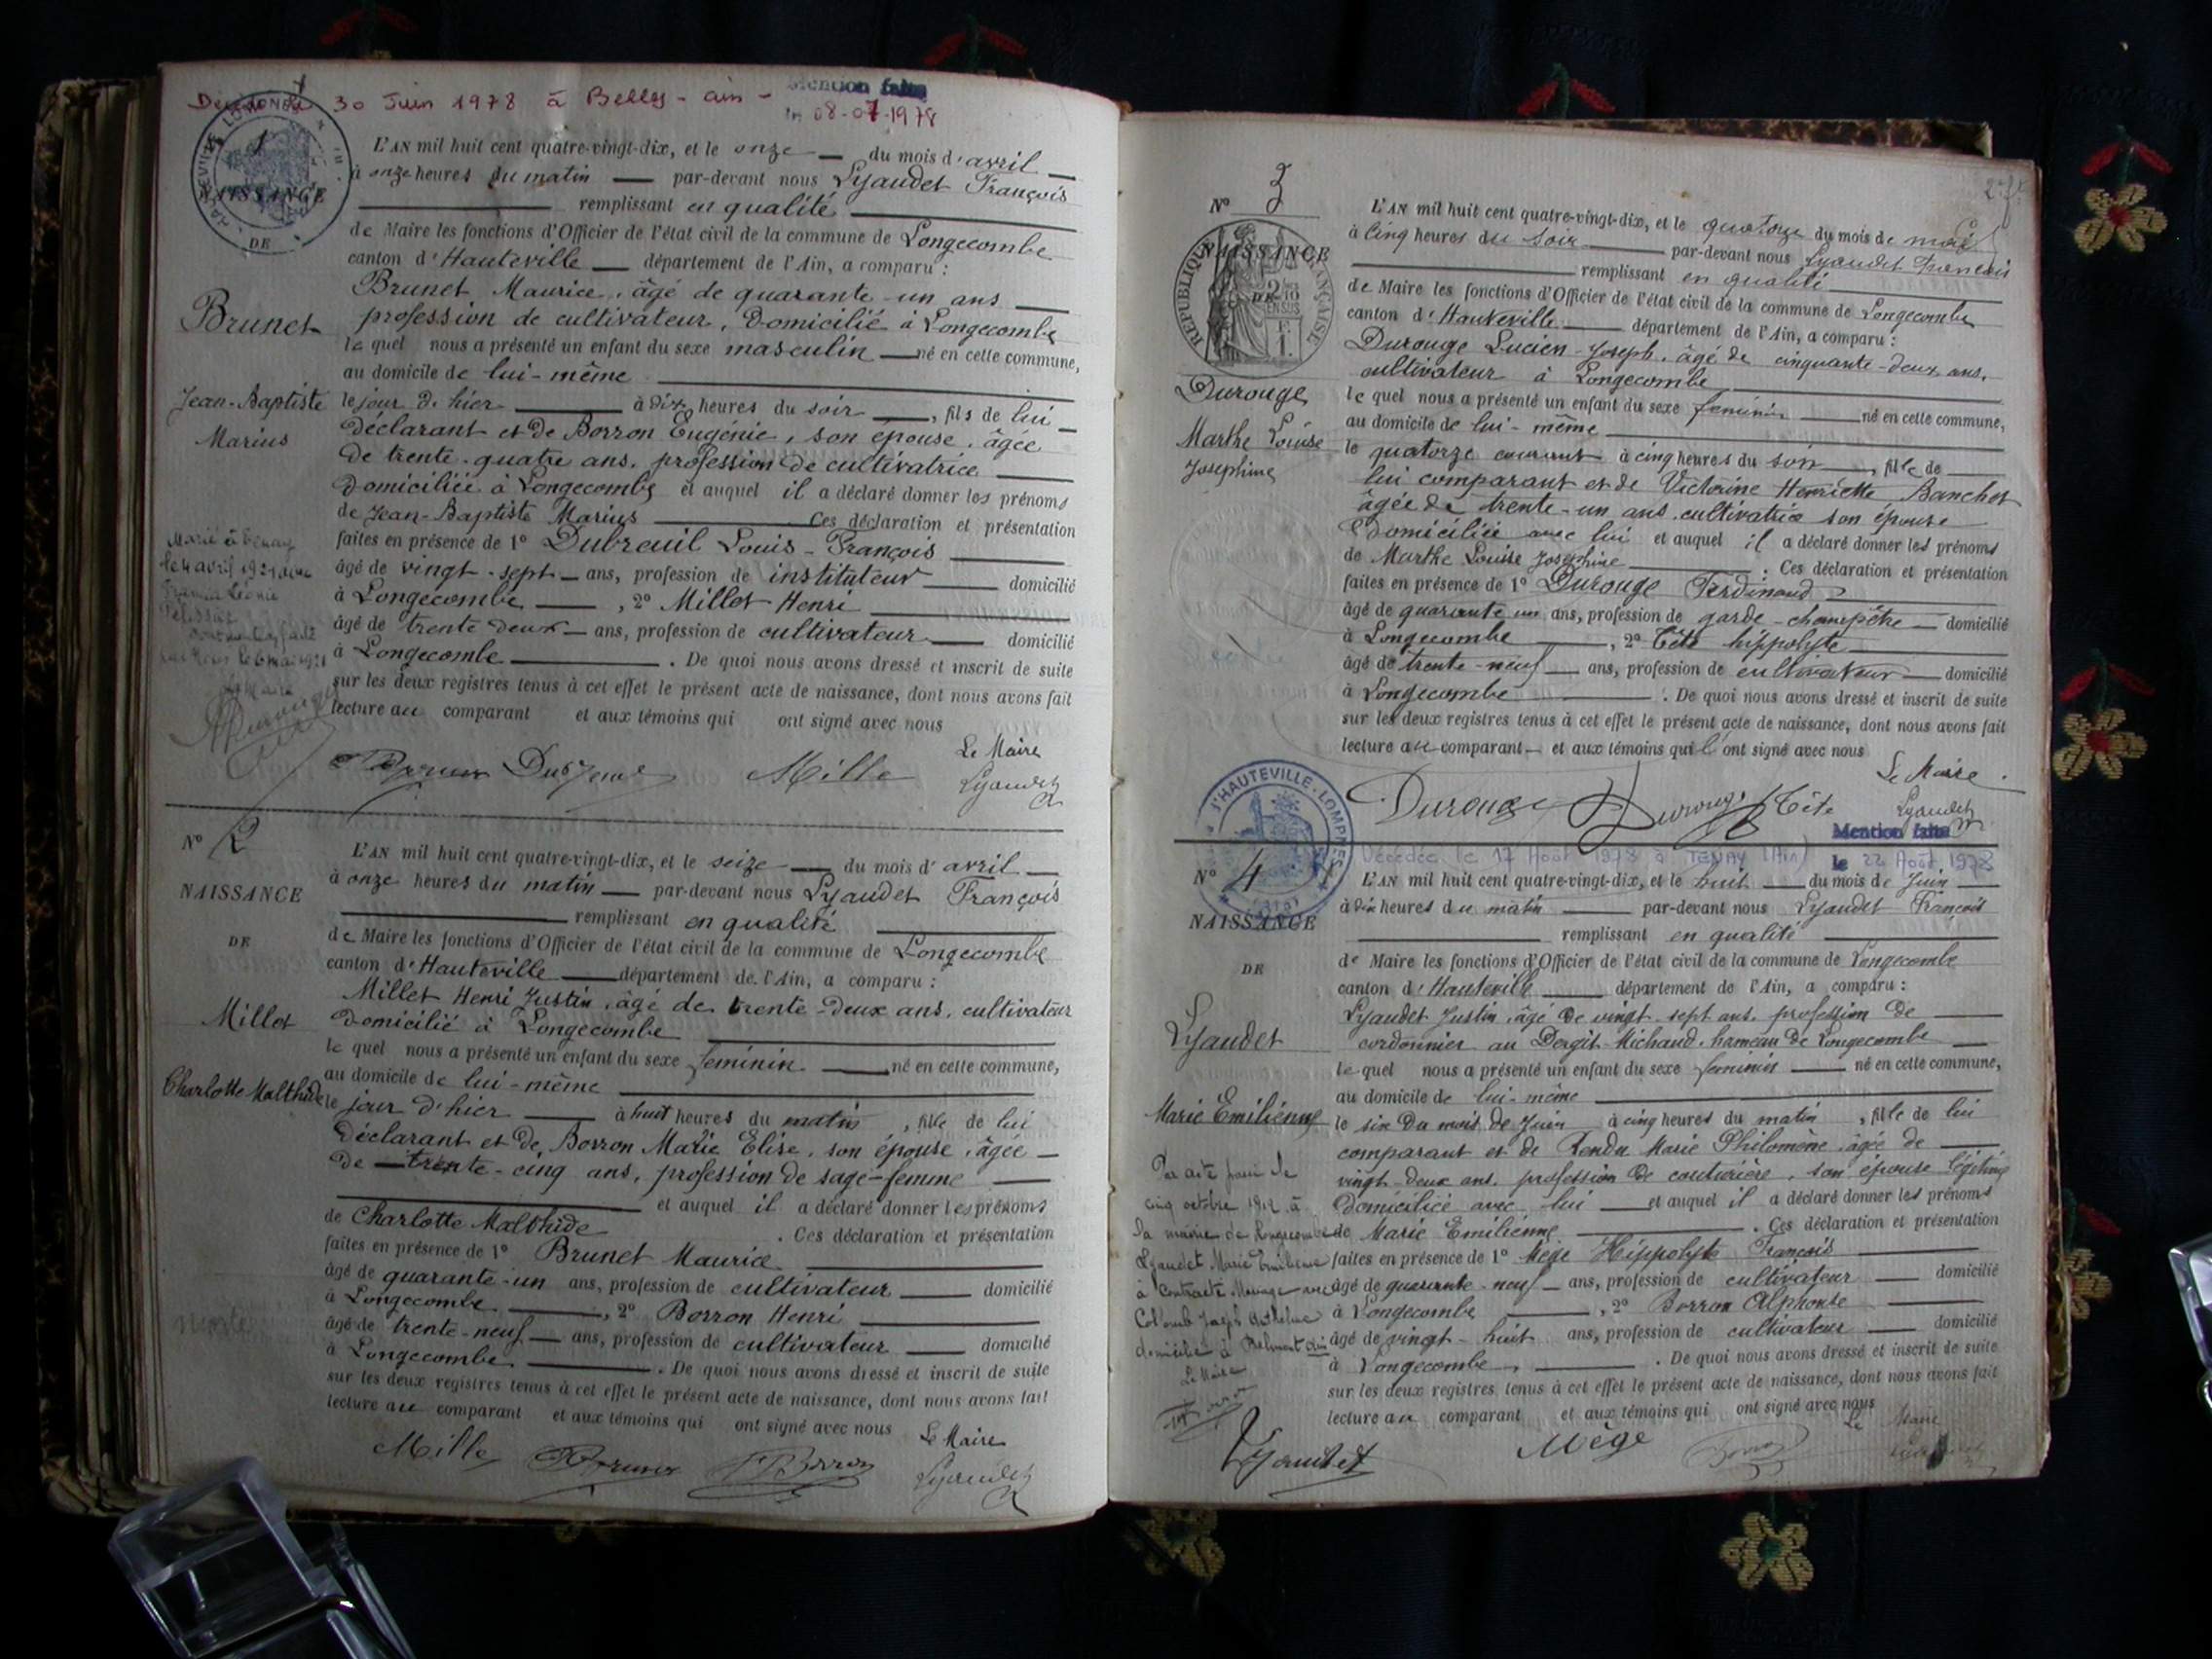 30 Juin 1978 à Belley - ain -
Mention faite
le 08-07-1978
HAUTEVILLE LOMPNES
1
NAISSANCE
DE
Brunet
Jean-Baptiste
Marius
L'AN mil huit cent quatre-vingt-dix, et le onze du mois d'avril
à onze heures du matin par-devant nous Lyaudet François
remplissant en qualité
de Maire les fonctions d'Officier de l'état civil de la commune de Longecombe
canton d'Hauteville département de l'Ain, a comparu :
Brunet Maurice, âgé de quarante-un ans
profession de cultivateur, domicilié à Longecombe
lequel nous a présenté un enfant du sexe masculin né en cette commune,
au domicile de lui-même
le jour d'hier à dix heures du soir, fils de lui
déclarant et de Borron Eugénie, son épouse, âgée
de trente-quatre ans, profession de cultivatrice
domiciliée à Longecombe et auquel il a déclaré donner les prénoms
de Jean-Baptiste Marius Ces déclaration et présentation
faites en présence de 1º Dubreuil Louis-François
âgé de vingt-sept ans, profession de instituteur domicilié
à Longecombe, 2º Millet Henri
âgé de trente deux ans, profession de cultivateur domicilié
à Longecombe. De quoi nous avons dressé et inscrit de suite
sur les deux registres tenus à cet effet le présent acte de naissance, dont nous avons fait
lecture au comparant et aux témoins qui ont signé avec nous
Marié à Tenay
le 4 avril 1921 avec
Le Maire
Le Maire
Lyaudet
Nº 2
NAISSANCE
DE
Millet
Charlotte Malthide
L'AN mil huit cent quatre-vingt-dix, et le seize du mois d'avril
à onze heures du matin par-devant nous Lyaudet François
remplissant en qualité
de Maire les fonctions d'Officier de l'état civil de la commune de Longecombe
canton d'Hauteville département de l'Ain, a comparu :
Millet Henri Justin, âgé de trente-deux ans, cultivateur
domicilié à Longecombe
lequel nous a présenté un enfant du sexe féminin né en cette commune,
au domicile de lui-même
le jour d'hier à huit heures du matin, fille de lui
déclarant et de Borron Marie Elise, son épouse, âgée
de trente-cinq ans, profession de sage-femme
et auquel il a déclaré donner les prénoms
de Charlotte Malthide. Ces déclaration et présentation
faites en présence de 1º Brunet Maurice
âgé de quarante-un ans, profession de cultivateur domicilié
à Longecombe, 2º Borron Henri
âgé de trente-neuf ans, profession de cultivateur domicilié
à Longecombe. De quoi nous avons dressé et inscrit de suite
sur les deux registres tenus à cet effet le présent acte de naissance, dont nous avons fait
lecture au comparant et aux témoins qui ont signé avec nous
Le Maire
Lyaudet
Nº 3
NAISSANCE
DE
REPUBLIQUE FRANÇAISE
Durouge
Marthe Louise
Josephine
L'AN mil huit cent quatre-vingt-dix, et le quatorze du mois de mai
à cinq heures du soir par-devant nous Lyaudet François
remplissant en qualité
de Maire les fonctions d'Officier de l'état civil de la commune de Longecombe
canton d'Hauteville département de l'Ain, a comparu :
Durouge Lucien-Joseph, âgé de cinquante-deux ans,
cultivateur à Longecombe
lequel nous a présenté un enfant du sexe féminin né en cette commune,
au domicile de lui-même
le quatorze courant à cinq heures du soir, fille de
lui comparant et de Victorine Henriette Banchet
âgée de trente-un ans, cultivatrice son épouse
domiciliée avec lui et auquel il a déclaré donner les prénoms
de Marthe Louise Josephine. Ces déclaration et présentation
faites en présence de 1º Durouge Ferdinand
âgé de quarante un ans, profession de garde-champêtre domicilié
à Longecombe, 2º Tête hippolyte
âgé de trente-neuf ans, profession de cultivateur domicilié
à Longecombe. De quoi nous avons dressé et inscrit de suite
sur les deux registres tenus à cet effet le présent acte de naissance, dont nous avons fait
lecture au comparant et aux témoins qui l'ont signé avec nous
Le Maire
Durouge Durouge Tête Lyaudet
Mention faite
le 22 Août 1978
Décédée le 17 Août 1978 à TENAY (Ain)
HAUTEVILLE-LOMPNES
Nº 4
NAISSANCE
DE
Lyaudet
Marie Emilienne
L'AN mil huit cent quatre-vingt-dix, et le huit du mois de Juin
à dix heures du matin par-devant nous Lyaudet François
remplissant en qualité
de Maire les fonctions d'Officier de l'état civil de la commune de Longecombe
canton d'Hauteville département de l'Ain, a comparu :
Lyaudet Justin, âgé de vingt-sept ans, profession de
cordonnier au Dergit-Michaud, hameau de Longecombe
lequel nous a présenté un enfant du sexe féminin né en cette commune,
au domicile de lui-même
le six du mois de Juin à cinq heures du matin, fille de lui
comparant et de Rendu Marie Philomène, âgée de
vingt-deux ans, profession de couturière, son épouse légitime
domiciliée avec lui et auquel il a déclaré donner les prénoms
de Marie Emilienne. Ces déclaration et présentation
faites en présence de 1º Mège Hippolyte François
âgé de quarante-neuf ans, profession de cultivateur domicilié
à Longecombe, 2º Borron Alphonse
âgé de vingt-huit ans, profession de cultivateur domicilié
à Longecombe. De quoi nous avons dressé et inscrit de suite
sur les deux registres tenus à cet effet le présent acte de naissance, dont nous avons fait
lecture au comparant et aux témoins qui ont signé avec nous
Par acte passé le
cinq octobre 1912 à
la mairie de Longecombe
Lyaudet Marie Emilienne
a contracté Mariage avec
Colomb Joseph Anthelme
domicilié à Belmont Ain
Le Maire
Lyaudet Mège
Le Maire